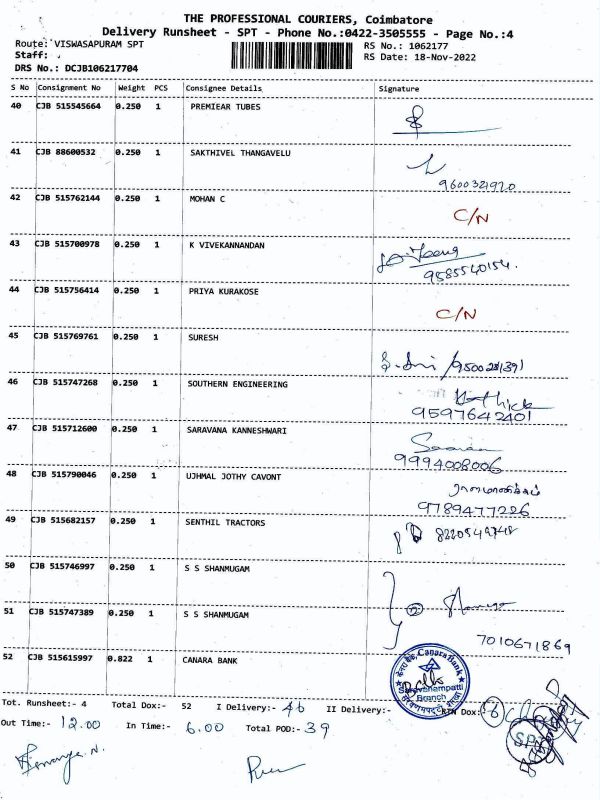 THE PROFESSIONAL COURIERS, Coimbatore
Delivery Runsheet - SPT - Phone No.:0422-3505555 - Page No.:4
Route: VISWASAPURAM SPT
RS No.: 1062177
Staff:
RS Date: 18-Nov-2022
DRS No.: DCJB106217704
S No Consignment No Weight PCS Consignee Details Signature
40 CJB 515545664 0.250 1 PREMIEAR TUBES
41 CJB 88600532 0.250 1 SAKTHIVEL THANGAVELU
42 CJB 515762144 0.250 1 MOHAN C C/N
43 CJB 515700978 0.250 1 K VIVEKANNANDAN
9585540154.
44 CJB 515756414 0.250 1 PRIYA KURAKOSE C/N
45 CJB 515769761 0.250 1 SURESH
46 CJB 515747268 0.250 1 SOUTHERN ENGINEERING
9597642401
47 CJB 515712600 0.250 1 SARAVANA KANNESHWARI
9994008006
48 CJB 515790046 0.250 1 UJHMAL JOTHY CAVONT
9789477226
49 CJB 515682157 0.250 1 SENTHIL TRACTORS
50 CJB 515746997 0.250 1 S S SHANMUGAM
51 CJB 515747389 0.250 1 S S SHANMUGAM
7010671869
52 CJB 515615997 0.822 1 CANARA BANK
Canara Bank
Branch
Tot. Runsheet:- 4 Total Dox:- 52 I Delivery:- 46 II Delivery:- RTN Dox:- 6
Out Time:- 12.00 In Time:- 6.00 Total POD:- 39
SPT